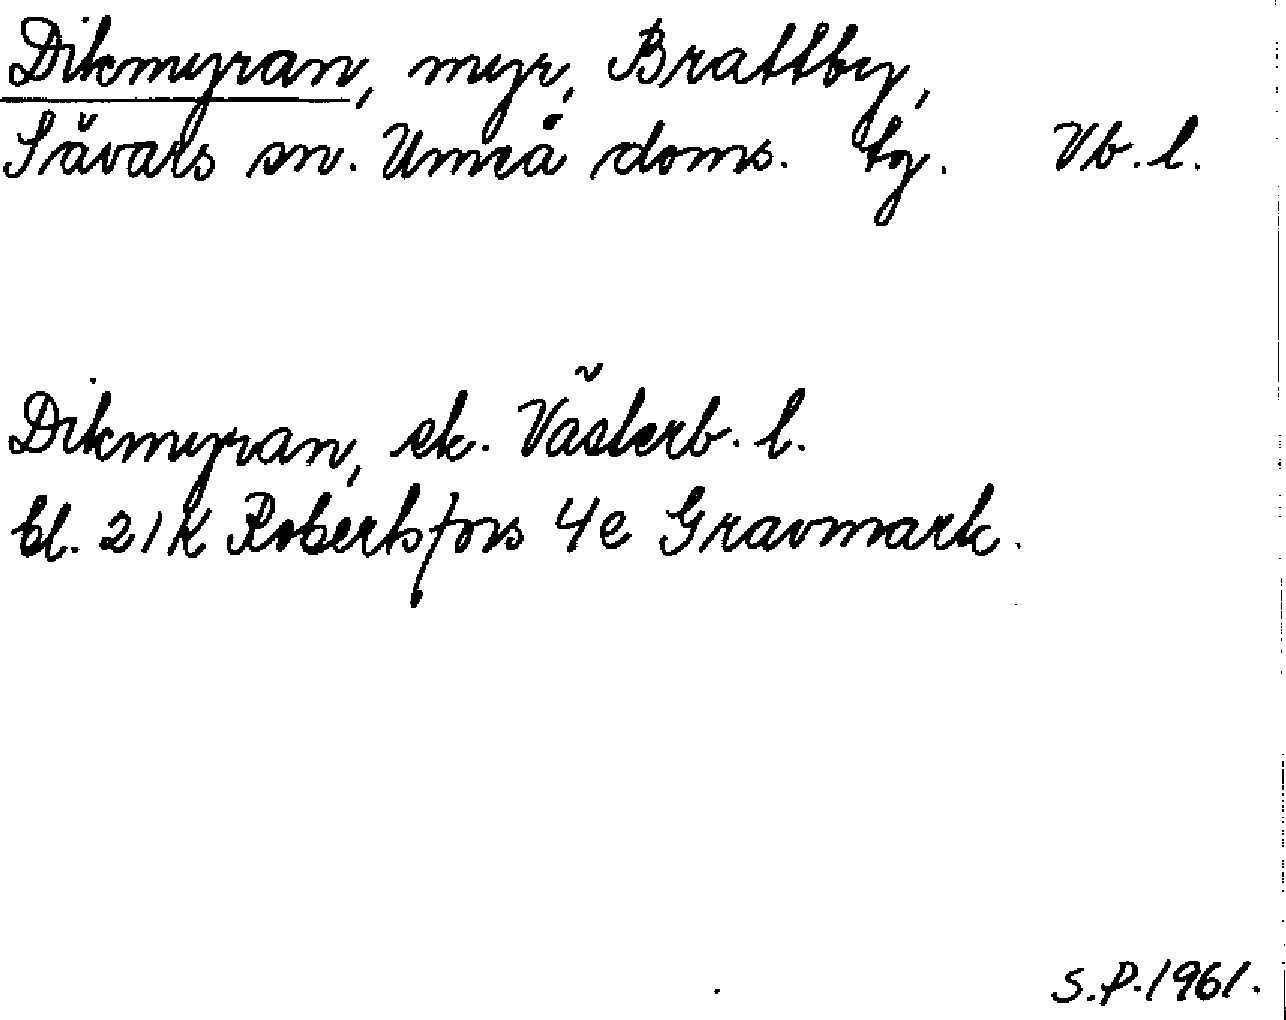 Dikmyran, myr, Brattby,
Sävars sn. Umeå doms. tg. Vb. l.
Dikmyran, ek. Västerb. l.
bl. 21K Robertsfors 4e Gravmark.
S.P. 1961.